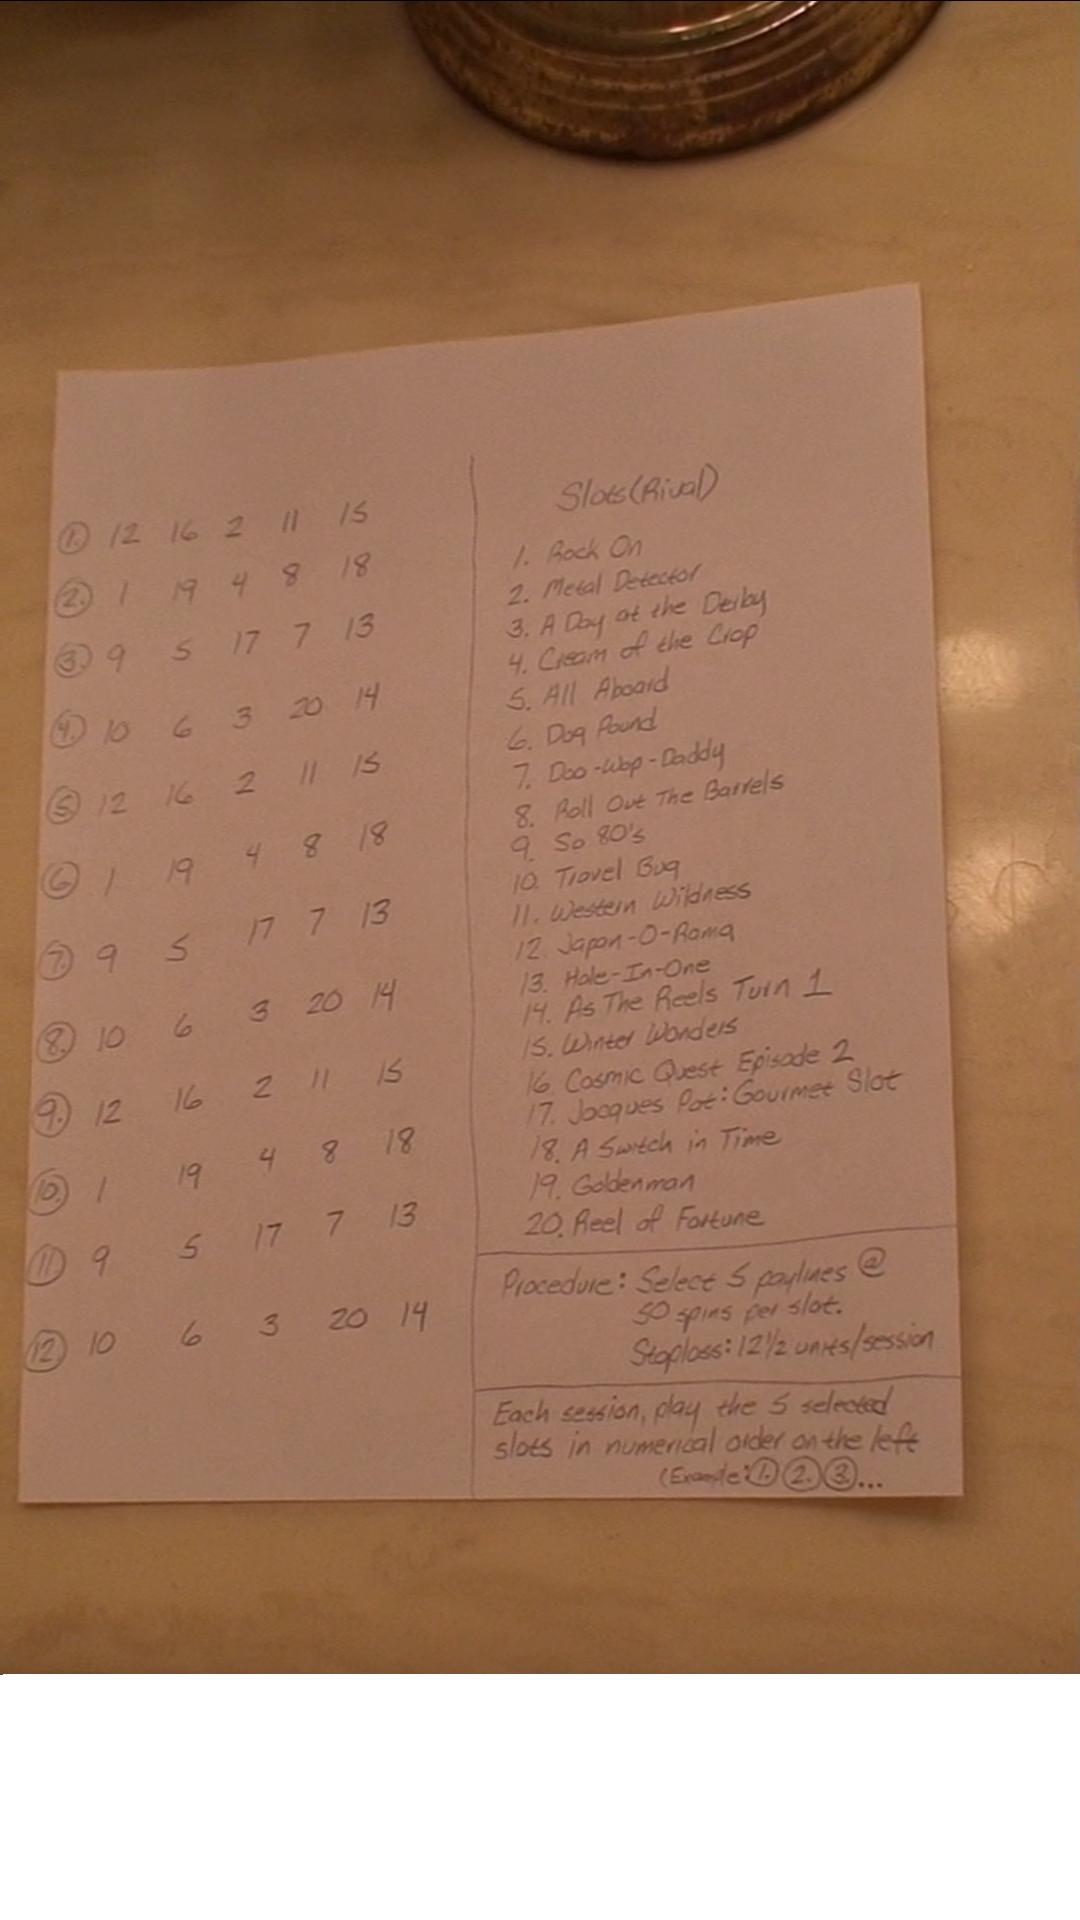 1. 12 16 2 11 15
2. 1 19 4 8 18
3. 9 5 17 7 13
4. 10 6 3 20 14
5 12 16 2 11 15
6 1 19 4 8 18
7. 9 5 17 7 13
8. 10 6 3 20 14
9. 12 16 2 11 15
10. 1 19 4 8 18
11 9 5 17 7 13
12 10 6 3 20 14
Slots (Rival)
1. Rock On
2. Metal Detector
3. A Day at the Derby
4. Cream of the Crop
5. All Aboard
6. Dog Pound
7. Doo-Wop-Daddy
8. Roll Out The Barrels
9. So 80's
10. Travel Bug
11. Western Wildness
12. Japan-O-Rama
13. Hole-In-One
14. As The Reels Turn 1
15. Winter Wonders
16. Cosmic Quest Episode 2
17. Jacques Pot: Gourmet Slot
18. A Switch in Time
19. Goldenman
20. Reel of Fortune
Procedure: Select 5 paylines @
50 spins per slot.
Stoploss: 12 1/2 units/session
Each session, play the 5 selected
slots in numerical order on the left
(Example: 1. 2. 3...